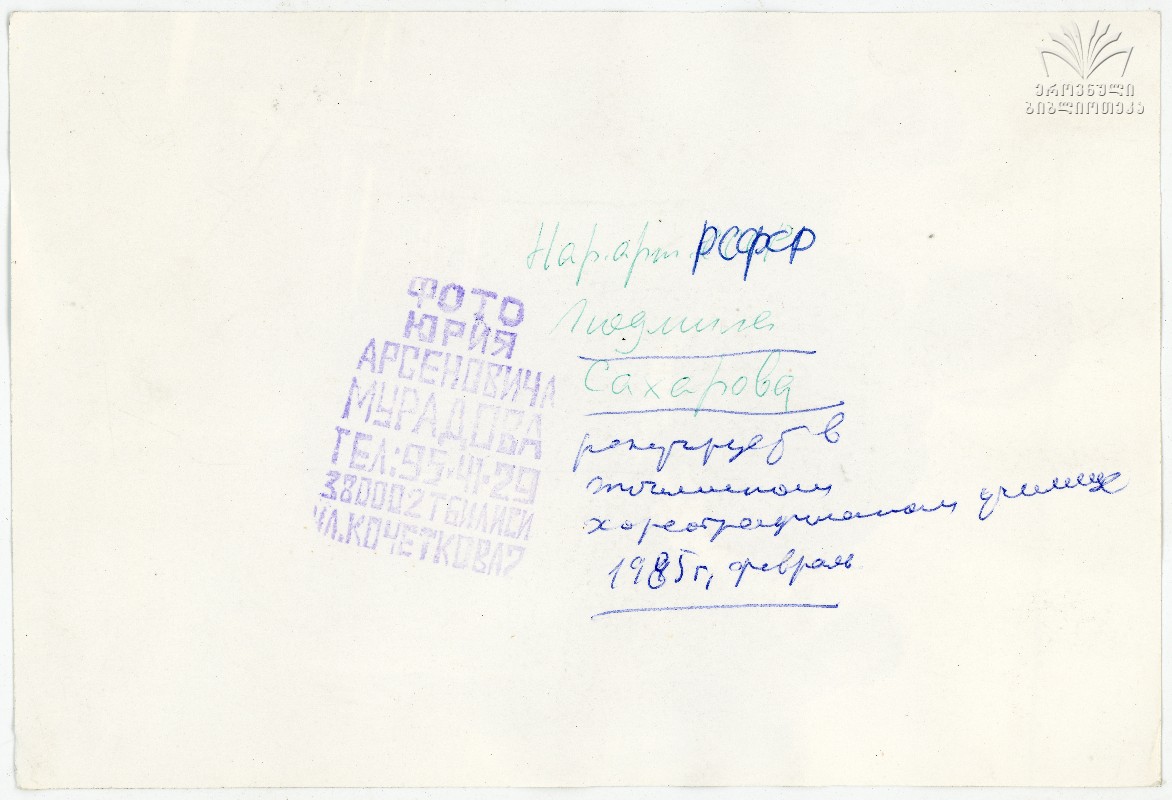 ეროვნული
ბიბლიოთეკა
Нар. арт. РСФСР
Людмила
Сахарова
репетирует в
тбилисском
хореографическом училище
1985 г, февраль
ФОТО
ЮРИЯ
АРСЕНОВИЧА
МУРАДОВА
ТЕЛ:95-41-29
380002 ТБИЛИСИ
УЛ.КОЧЕТКОВА7